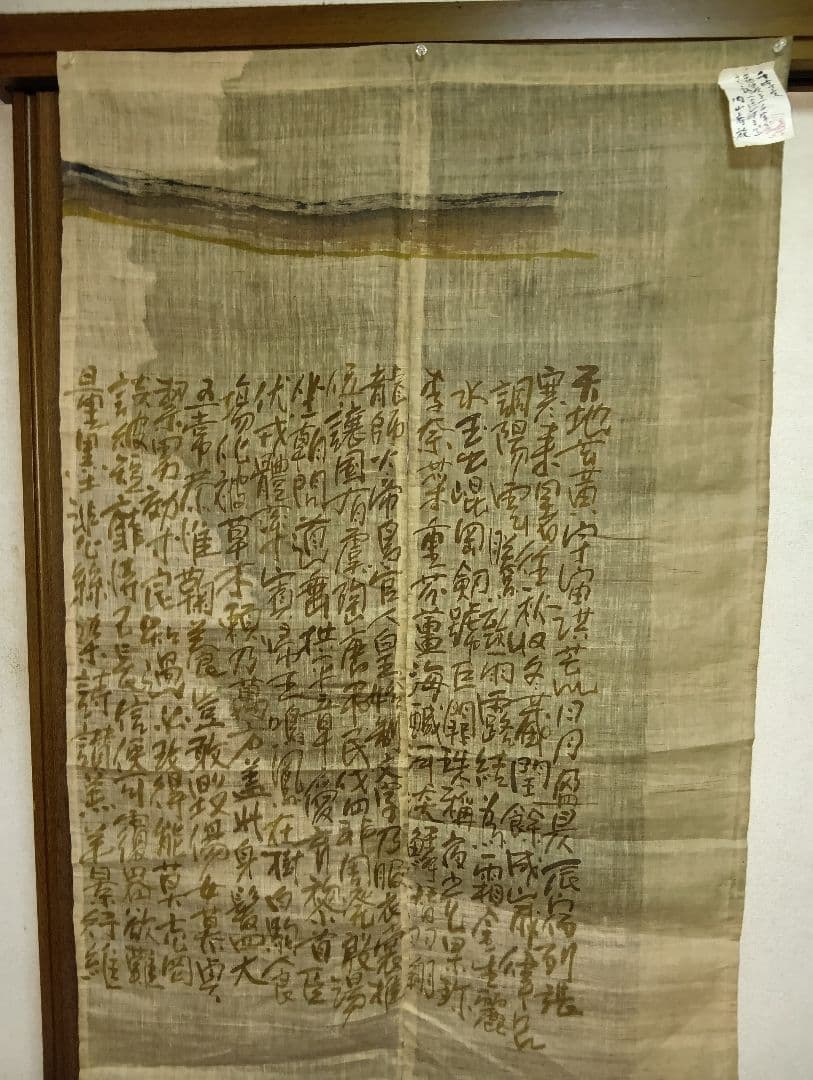 天地玄黃宇宙洪荒日月盈昃辰宿列張
寒来暑往秋収冬蔵閏餘成歳律呂
調陽雲騰致雨露結為霜金生麗
水玉出崐岡劍號巨闕珠稱夜光果珍
李柰菜重芥薑海鹹河淡鱗潜羽翔
龍師火帝鳥官人皇始制文字乃服衣裳推
位讓國有虞陶唐弔民伐罪周発殷湯
坐朝問道垂拱平章愛育黎首臣
伏戎體率賓帰王鳴鳳在樹白駒食
場化被草木頼及萬方盖此身髪四大
五常恭惟鞠養豈敢毀傷女慕貞
絜男効才良知過必改得能莫忘罔
談彼短靡恃己長信使可覆器欲難
量墨悲絲染詩讃羔羊景行維